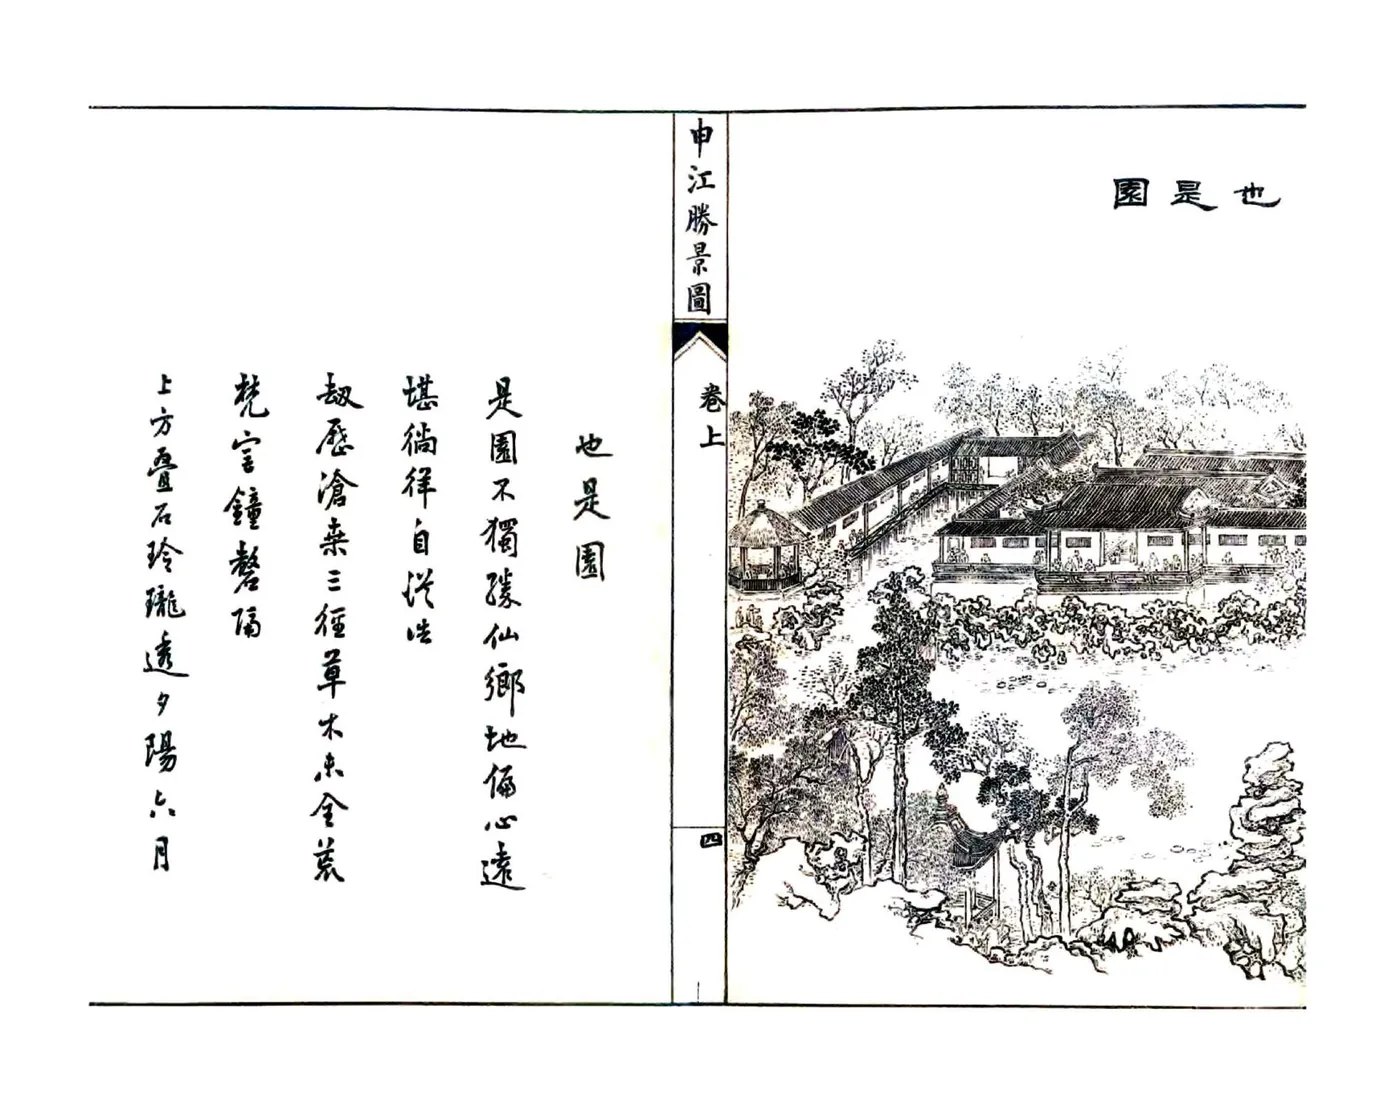 也是園
申江勝景圖
卷上
四
也是園
是園不獨勝仙鄉地偏心遠
堪徜徉自從浩
劫歷滄桑三徑草木未全荒
梵宮鐘磬隔
上方疊石玲瓏透夕陽六月